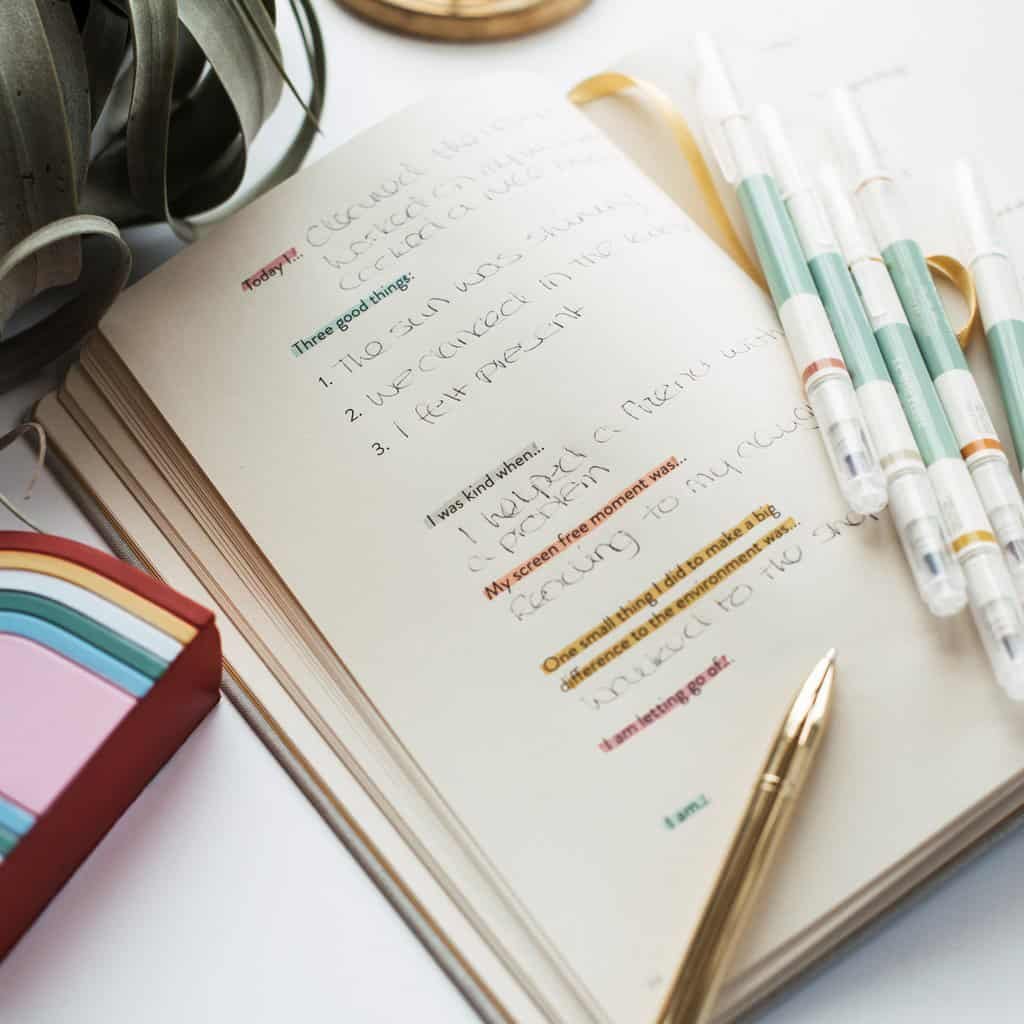 Today I... Cleaned the
worked on my
cooked a nice
Three good things:
1. The sun was shining
2. We danced in the
3. I felt present
I was kind when...
I helped a friend with
a problem
My screen free moment was...
Reading to my
One small thing I did to make a big
difference to the environment was...
walked to the shop
I am letting go of...
I am...